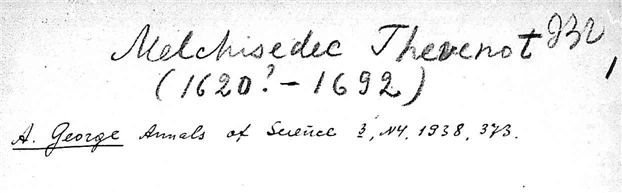 Melchisedec Thevenot 932,
(1620?-1692)
A. George Annals of Science 3, N4, 1938, 373.